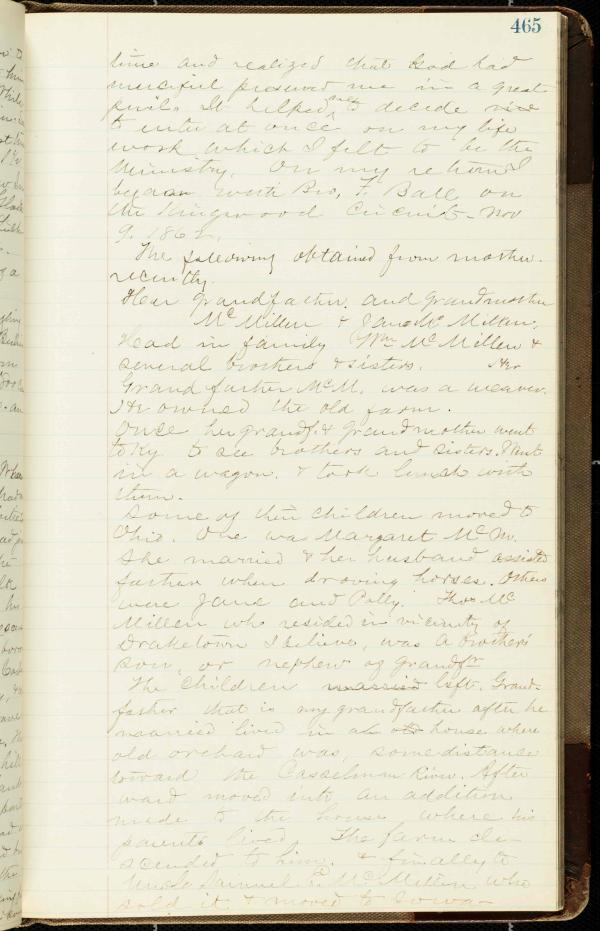 465
time and realized that God had
merciful preserved me in a great
peril. It helped me to decide
to enter at once on my life
work which I felt to be the
ministry. On my return I
began with Bro, F. Ball on
the Kingwood Circuit - Nov
9. 1862.
The following obtained from mother
recently.
Her grandfather. and Grandmother
McMillen & Jane McMillen.
Head in family Wm McMillen &
several brothers & sisters. Her
Grandfather McM. was a weaver.
He owned the old farm.
Once her grandf & Grandmother went
to Ky to see brothers and sisters. Went
in a wagon. & took lunch with
them.
Some of their children moved to
Ohio. One was Margaret McM.
She married & her husband assisted
father when droving horses. Others
were Jane and Polly. Thos Mc
Millen who resided in vicinity of
Draketown I believe, was a brother's
son, or nephew of grandfr
The children married left. Grand-
father that is my grandfather after he
married lived in a old house where
old orchard was, some distance
toward the Casselman River. After
ward moved into an addition
made to the house where his
parents lived. The farm de-
scended to him. & finally to
Uncle Samuel McMillen who
sold it & moved to Iowa-